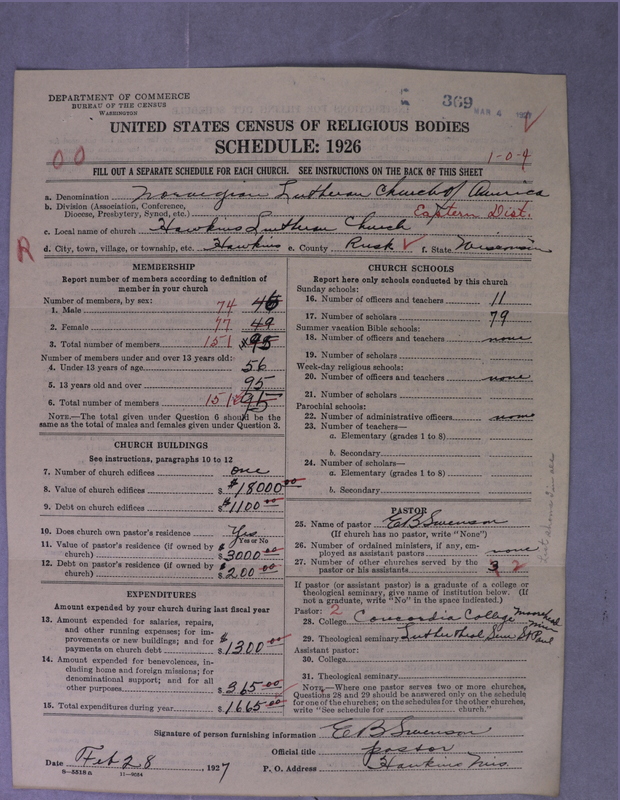 DEPARTMENT OF COMMERCE
BUREAU OF THE CENSUS
WASHINGTON
369
MAR 4 1927
UNITED STATES CENSUS OF RELIGIOUS BODIES
SCHEDULE: 1926
00
1-0-4
FILL OUT A SEPARATE SCHEDULE FOR EACH CHURCH. SEE INSTRUCTIONS ON THE BACK OF THIS SHEET
a. Denomination Norwegian Lutheran Church of America
b. Division (Association, Conference, Diocese, Presbytery, Synod, etc.) Eastern Dist.
c. Local name of church Hawkins Lutheran Church
d. City, town, village, or township, etc. Hawkins e. County Rusk f. State Wisconsin
R
MEMBERSHIP
Report number of members according to definition of member in your church
Number of members, by sex:
1. Male 74 46
2. Female 77 49
3. Total number of members 151 95
Number of members under and over 13 years old:
4. Under 13 years of age 56
5. 13 years old and over 95
6. Total number of members 151
NOTE.—The total given under Question 6 should be the same as the total of males and females given under Question 3.
CHURCH BUILDINGS
See instructions, paragraphs 10 to 12
7. Number of church edifices one
8. Value of church edifices $18000.00
9. Debt on church edifices $1100.00
10. Does church own pastor's residence Yes
Yes or No
11. Value of pastor's residence (if owned by church) $3000.00
12. Debt on pastor's residence (if owned by church) $200.00
EXPENDITURES
Amount expended by your church during last fiscal year
13. Amount expended for salaries, repairs, and other running expenses; for improvements or new buildings; and for payments on church debt $1300.00
14. Amount expended for benevolences, including home and foreign missions; for denominational support; and for all other purposes $365.00
15. Total expenditures during year $1665.00
CHURCH SCHOOLS
Report here only schools conducted by this church
Sunday schools:
16. Number of officers and teachers 11
17. Number of scholars 79
Summer vacation Bible schools:
18. Number of officers and teachers none
19. Number of scholars
Week-day religious schools:
20. Number of officers and teachers none
21. Number of scholars
Parochial schools:
22. Number of administrative officers none
23. Number of teachers—
a. Elementary (grades 1 to 8)
b. Secondary
24. Number of scholars—
a. Elementary (grades 1 to 8)
b. Secondary
PASTOR
25. Name of pastor E B Swenson
(If church has no pastor, write "None")
26. Number of ordained ministers, if any, employed as assistant pastors none
27. Number of other churches served by the pastor or his assistants 3 2
If pastor (or assistant pastor) is a graduate of a college or theological seminary, give name of institution below. (If not a graduate, write "No" in the space indicated.)
Pastor: 2
28. College Concordia College Moorhead Minn
29. Theological seminary Luth Theol Sem St Paul
Assistant pastor:
30. College
31. Theological seminary
NOTE.—Where one pastor serves two or more churches, Questions 28 and 29 should be answered only on the schedule for one of the churches; on the schedules for the other churches, write "See schedule for church."
Signature of person furnishing information E B Swenson
Official title pastor
Date Feb 28 1927
P. O. Address Hawkins Wis.
8-5518a 11-9084